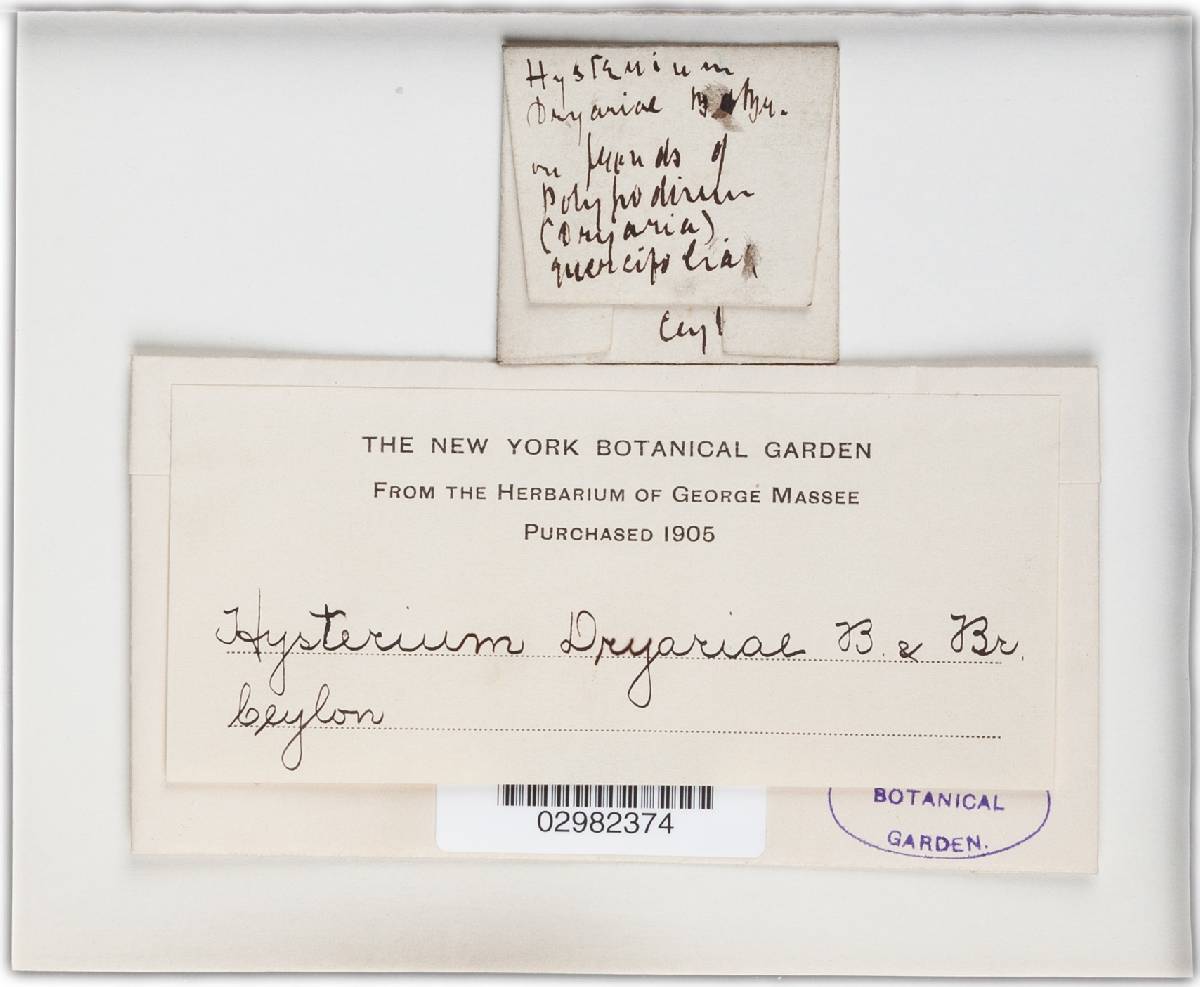 Hysterium
Dryariae B & Br.
on fronds of
Polypodium
(Dryaria)
quercifolia
Ceyl
THE NEW YORK BOTANICAL GARDEN
FROM THE HERBARIUM OF GEORGE MASSEE
PURCHASED 1905
Hysterium Dryariae B. & Br.
Ceylon
02982374
BOTANICAL
GARDEN.